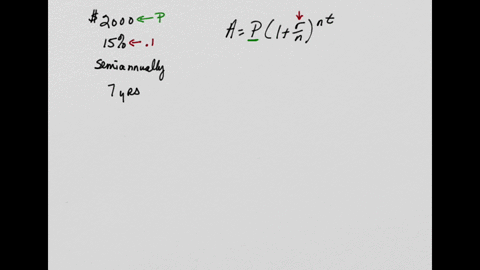 $2000 ← P
15% ← .1
Semiannually
7 yrs
A = P(1 + r/n)^nt